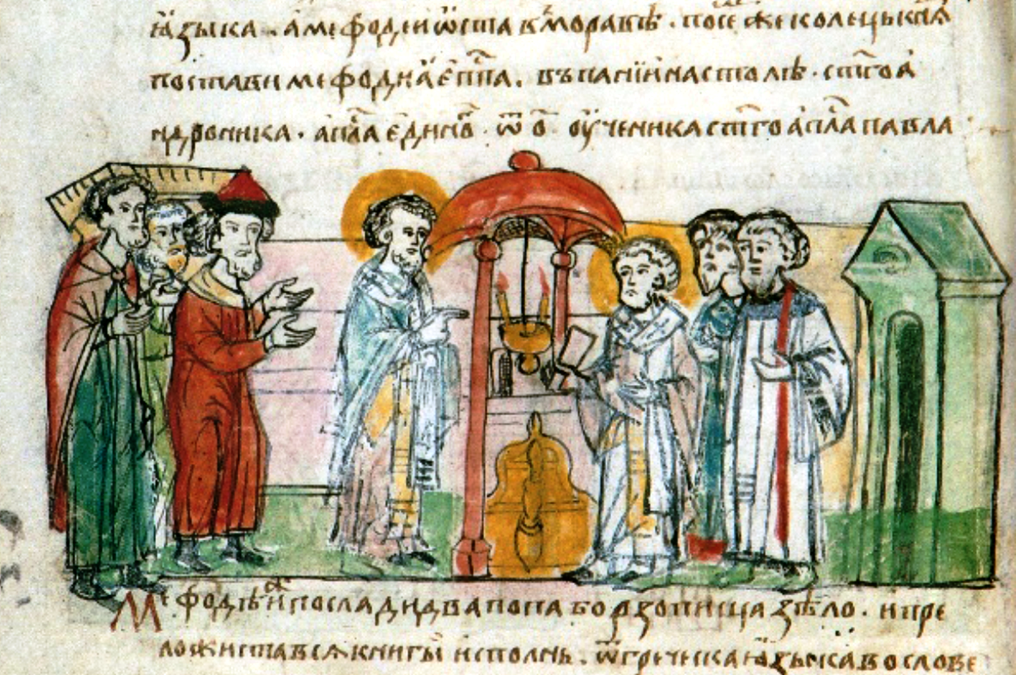 ꙗзыка · а мефодеи ѡста в моравѣ · посе же колець кнѧ
постави мефодиꙗ епⷭ҇па . въ пании на столѣ · ст҃го а
ндроника · апⷭ҇ла единⷪ҇ · ѿ · о҃ · оученика ст҃го апⷭ҇ла павла
Мефодѣ и посади два попа борзописца ѕѣло · и пре
ложиста всѧ книгы исполнь . ѿ греческа ꙗзыка в слове